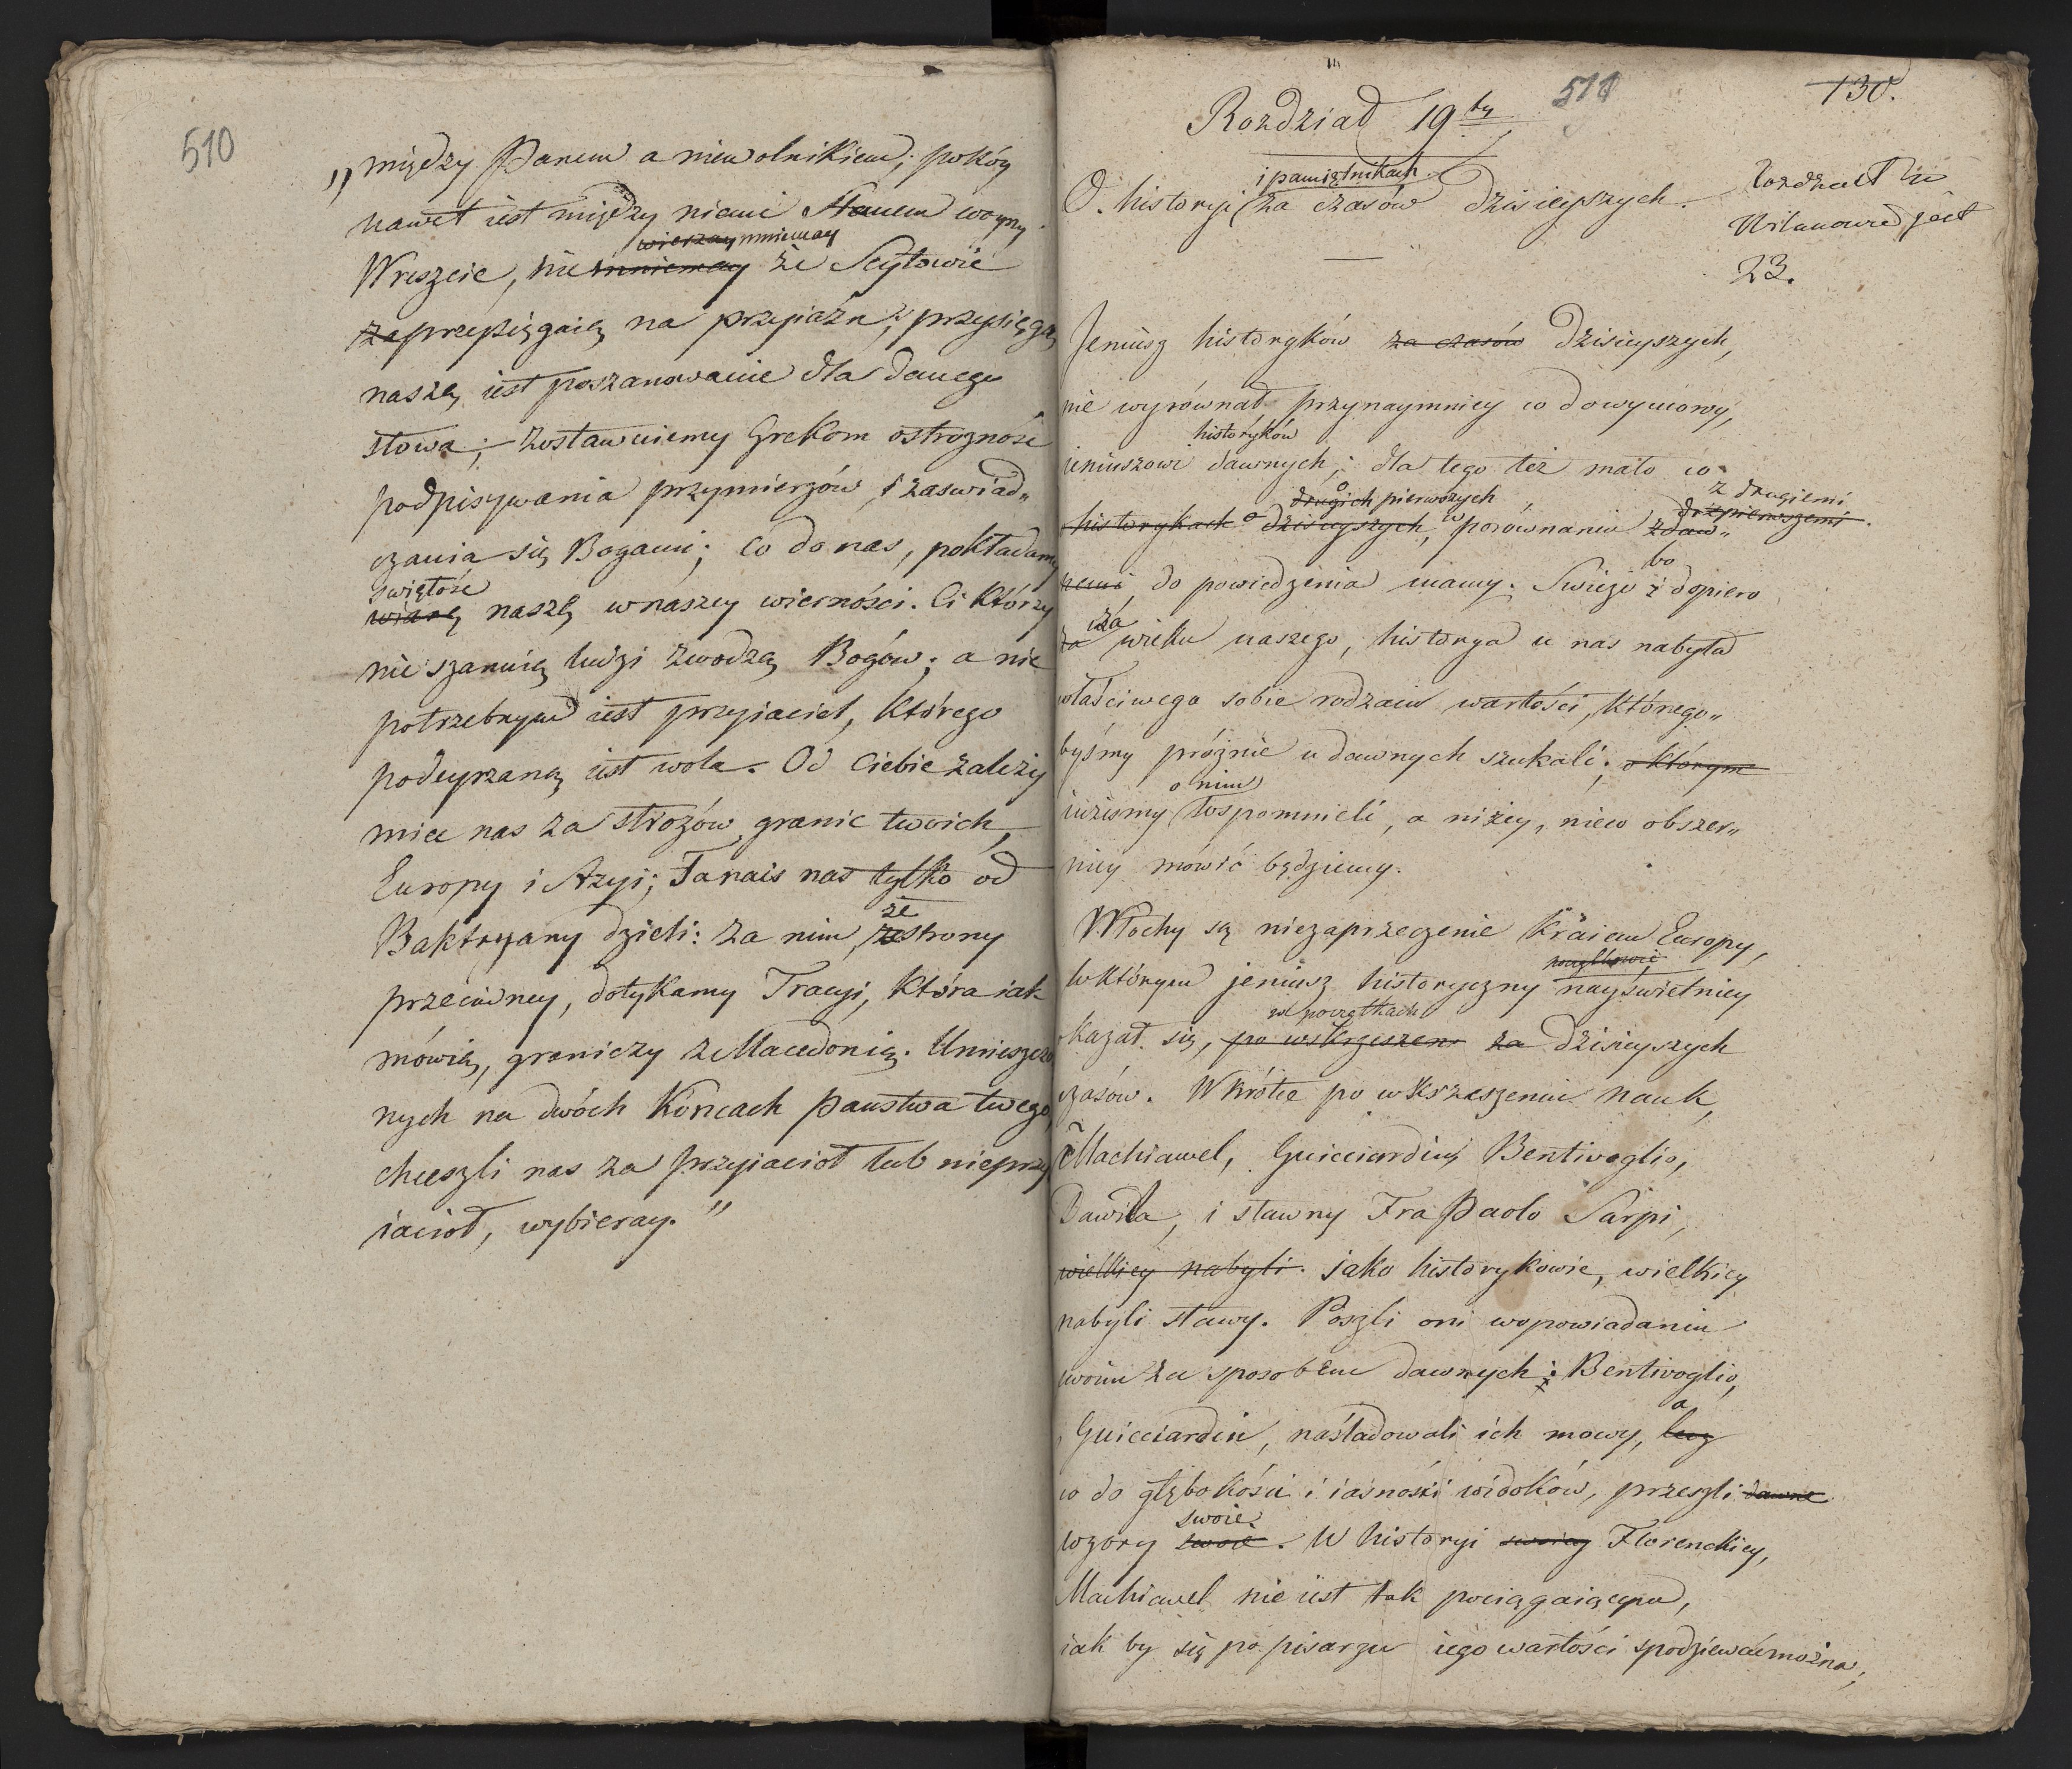 510
„między Panem a niewolnikiem; pokóy
nawet iest między niemi Stanem woyny.
wierzay mniemay
Wreszcie, nie mniemay że Scytowie
zaprzysięgaią na przyiaźń; przysięgą
naszą iest poszanowanie dla danego
słowa; zostawuiemy Grekom ostrożność
podpisywania przymierzów, i zaświad„
czania się Bogami; Co do nas, pokładamy
świętość
wiarę naszą w naszey wierności. Ci którzy
nie szanuią ludzi zwodzą Bogów; a nie
potrzebnym iest przyiaciel, którego
podeyrzaną iest wola. Od Ciebie zależy
mieć nas za stróżów granic twoich,
Europy i Azyi; Tanais nas tylko od
ze
Baktryany dzieli: za nim, ze strony
przeciwney, dotykamy Tracyi, która iak
mówią, graniczy z Macedonią. Umieszczo
nych na dwóch końcach państwa twego,
chceszli nas za przyiaciół lub nieprzy
iaciół, wybieray."
511
130.
Rozdział 19ty
i pamiętnikach
O. historyi za czasów dzisieyszych.
Rozdział w
Wilanowie jest
23.
Jeniusz historyków za czasów dzisieyszych,
nie wyrównał, przynaymniey co do wymowy,
historyków
ieniuszowi dawnych; dla tego też mało co
o drugich pierwszych z drugiemi
pierwszemi
historykach o dzisieyszych, w porównaniu z daw„
bo
nemi, do powiedzenia mamy. Świeżo i dopiero
za
za wieku naszego, historya u nas nabyła
właściwego sobie rodzaiu wartości, którego„
byśmy próżnie u dawnych szukali; o którym
o nim
iużeśmy wspomnieli, a niżey, niew obszer„
niey mówić będziemy.
Włochy są niezaprzeczenie kraiem Europy,
w którym jeniusz historyczny nayświetniey
w początkach
okazał się, po wskrzeszen za dzisieyszych
czasów. Wkrótce po wskrzeszeniu nauk,
Machiawel, Guicciardin, Bentivoglio,
Dawila, i sławny Fra Paolo Sarpi,
wielkiey nabyli. jako historykowie, wielkiey
nabyli sławy. Poszli oni w opowiadaniu
swoim za sposobem dawnych: Bentivoglio,
a
Guicciardin, naśladowali ich mowy, lecz
co do głębokości i iasności widoków, przeszli dawne
swoie
wzory swoie. W historyi swoiey Florenckiey,
Machiawel nie iest tak pociągaiącym,
iak by się po pisarzu iego wartości spodziewać można;